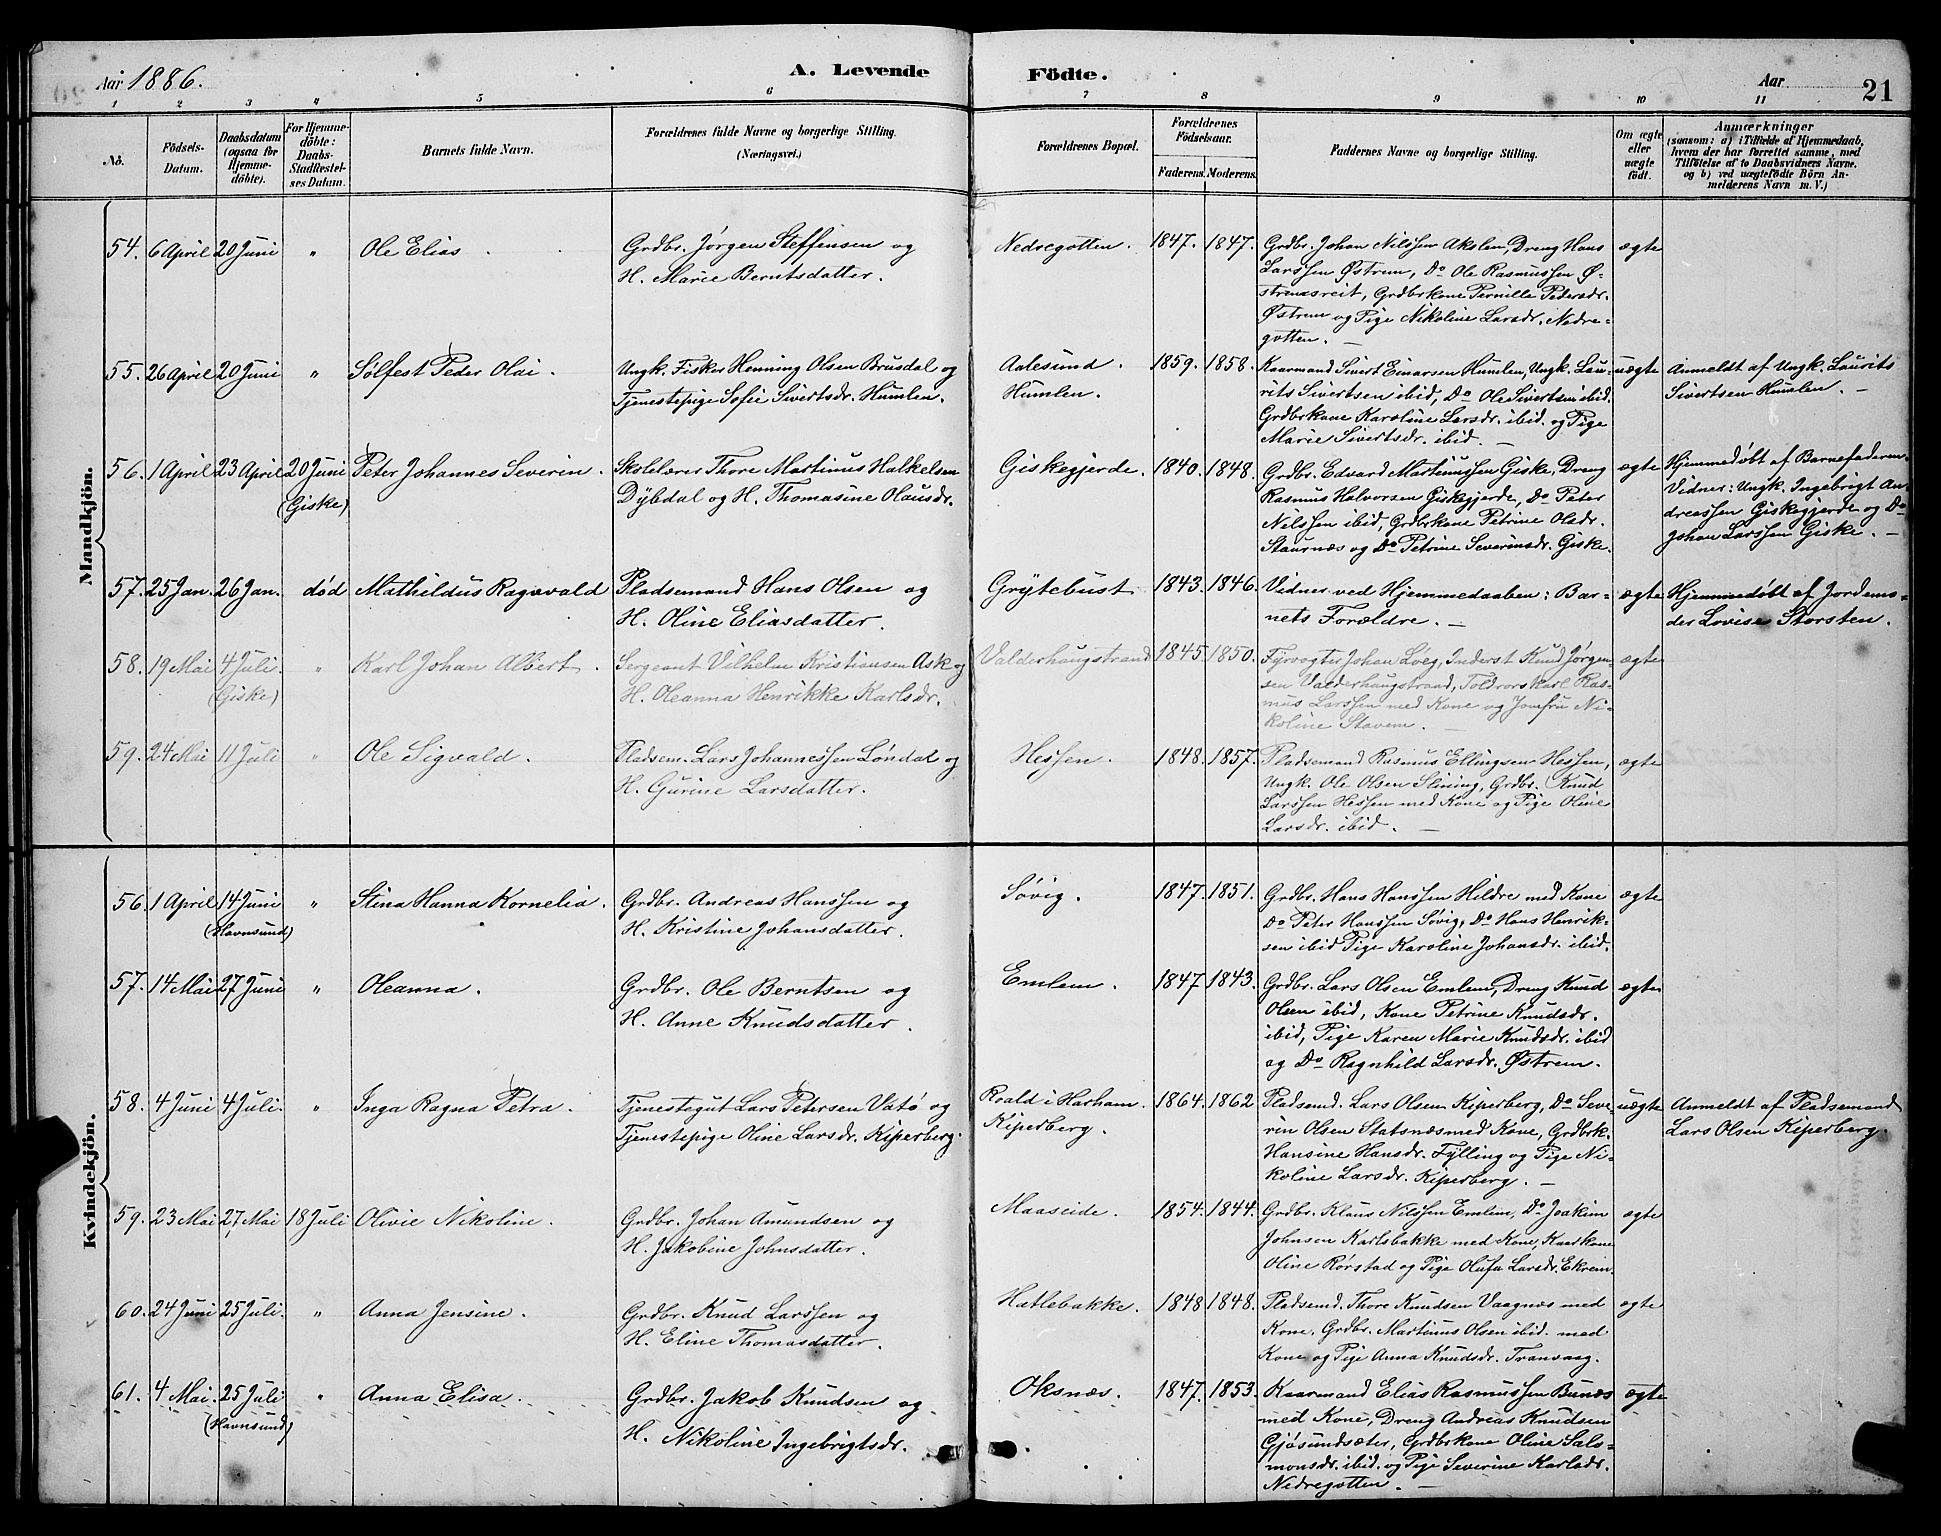 Aar 1886.
A. Levende Födte.
Aar
21
1 2 3 4 5 6 7 8 9 10 11
No.
Födsels-
Datum.
Daabsdatum
(ogsaa for
Hjemme-
döbte).
For Hjemme-
döbte:
Daabs-
Stadfæstel-
ses Datum.
Barnets fulde Navn.
Forældrenes fulde Navne og borgerlige Stilling.
(Næringsvei.)
Forældrenes Bopæl.
Forældrenes
Födselsaar.
Faderens. Moderens.
Faddernes Navne og borgerlige Stilling.
Om ægte
eller
uægte
födt.
Anmærkninger
(saasom: a) i Tilfælde af Hjemmedaab,
hvem der har forrettet samme, med
Tilföielse af to Daabsvidners Navne,
og b) ved uægtefödte Börn An-
melderens Navn m. V.)
Mandkjön.
54. 6 April 20 Juni " Ole Elias. Grdbr. Jørgen Steffensen og
H. Marie Berntsdatter.
Nedregotten. 1847. 1847. Grdbr. Johan Nilssen Akslen, Dreng Hans
Larssen Østrem, Do Ole Rasmussen Ø-
stremsreit, Grdbrkone Pernille Pedersdr.
Østrem og Pige Nikoline Larsdr. Nedre-
gotten. —
ægte
55. 26 April 20 Juni " Sølfest Peder Olai. Ungk. Fisker Henning Olsen Brusdal og
Tjenestepige Sofie Sivertsdr. Humlen.
Aalesund.
Humlen.
1859. 1858. Kaarmand Sivert Einarsen Humlen, Ungk. Lau-
rits Sivertsen ibid, Do Ole Sivertsen ibid.
Grdbrkone Karoline Larsdr. ibid. og Pige
Marie Sivertsdr. ibid. —
uægte Anmeldt af Ungk. Laurits
Sivertsen Humlen. —
56. 1 April 23 April 20 Juni
(Giske)
Peter Johannes Severin. Skolelærer Thore Martinus Halkelsen
Dybdal og H. Thomasine Olausdr.
Giskegjerde. 1840. 1848. Grdbr. Edvard Martinussen Giske, Dreng
Rasmus Halvorsen Giskegjerde, Do Peter
Nilssen ibid, Grdbrkone Petrine Olsdr.
Staurnæs og Do Petrine Severinsdr. Giske.
ægte Hjemmedøbt af Barnefaderen.
Vidner: Ungk. Ingebrigt An-
dreassen Giskegjerde og Do
Johan Larssen Giske. —
57. 25 Jan. 26 Jan. død Mathildus Ragnvald Pladsemand Hans Olsen og
H. Oline Eliasdatter.
Grytebust 1843. 1846. Vidner ved Hjemmedaaben: Bar-
nets Forældre. —
ægte Hjemmedøbt af Jordemo-
der Lovise Storsten.
58. 19 Mai 4 Juli.
(Giske)
" Karl Johan Albert. Sergeant Vilhelm Kristiansen Ask og
H. Oleanna Henrikke Karlsdr.
Valderhaugstrand 1845. 1850. Fyrvogter Johan Løeg, Inderst Knud Jørgen-
sen Valderhaugstrand, Toldrorskarl Ras-
mus Larssen med Kone og Jomfru Ni-
koline Stavem.
ægte
59. 24 Mai 11 Juli " Ole Sigvald. Pladsem. Lars Johannessen Løndal og
H. Gurine Larsdatter.
Hessen. 1848. 1857. Pladsemand Rasmus Ellingsen Hessen,
Ungk. Ole Olsen Slining, Grdbr. Knud
Larssen Hessen med Kone og Pige Oline
Larsdr. ibid. —
ægte
Kvindekjön.
56. 1 April 14 Juni
(Havnsund)
" Stina Hanna Kornelia. Grdbr. Andreas Hanssen og
H. Kristine Johansdatter.
Søvig. 1847. 1851. Grdbr. Hans Hanssen Hildre med Kone
Do Peter Hanssen Søvig, Do Hans Henrik-
sen ibid Pige Karoline Johansdr. ibid.
ægte
57. 14 Mai 27 Juni " Oleanna. Grdbr. Ole Berntsen og
H. Anne Knudsdatter.
Emlem. 1847. 1843. Grdbr. Lars Olsen Emlem, Dreng Knud
Olsen ibid, Kone Petrine Knudsdr.
ibid, Pige Karen Marie Knudsdr. ibid
og Do Ragnhild Larsdr. Østrem.
ægte
58. 4 Juni 4 Juli. " Inga Ragna Petra. Tjenestegut Lars Petersen Vatø og
Tjenestepige Oline Larsdr. Kiperberg.
Roald i Harham.
Kiperberg.
1864. 1862 Pladsemd. Lars Olsen Kiperberg, Do Seve-
rin Olsen Statsnæs med Kone, Grdbrk.
Hansine Hansdr. Fylling og Pige Ni-
koline Larsdr. Kiperberg. —
uægte Anmeldt af Pladsemand
Lars Olsen Kiperberg.
59. 23 Mai 27 Mai 18 Juli Olivie Nikoline. Grdbr. Johan Amundsen og
H. Jakobine Johnsdatter.
Maaseide. 1854. 1844. Grdbr. Klaus Nilssen Emlem, Do Joakim
Johnsen Karlsbakke med Kone, Kaarkone
Oline Rørstad og Pige Olufa Larsdr. Ekrem.
ægte
60. 24 Juni 25 Juli. " Anna Jensine. Grdbr. Knud Larssen og
H. Eline Thomasdatter.
Hatlebakke. 1848 1848. Pladsemd. Thore Knudsen Vaagnæs med
Kone, Grdbr. Martinus Olsen ibid. med
Kone og Pige Anna Knudsdr. Tranvaag.
ægte
61. 4 Mai. 25 Juli
(Havnsund)
" Anna Elisa. Grdbr. Jakob Knudsen og
H. Nikoline Ingebrigtsdr.
Oksnæs. 1847. 1853. Kaarmand Elias Rasmussen Bunæs
med Kone, Dreng Andreas Knudsen
Gjøsundsæter, Grdbrkone Oline Salo-
monsdr. ibid. og Pige Severine Karlsdr.
Nedregotten. —
ægte